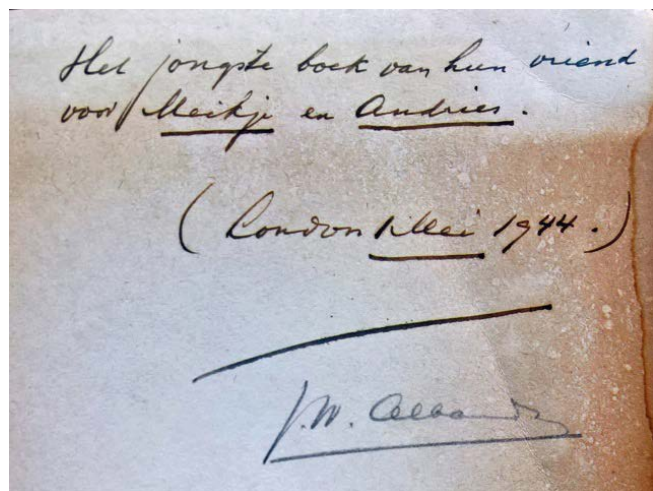 Het jongste boek van hun vriend
voor Meikje en Andries.
(London 1 Mei 1944.)
J.W. Albarda